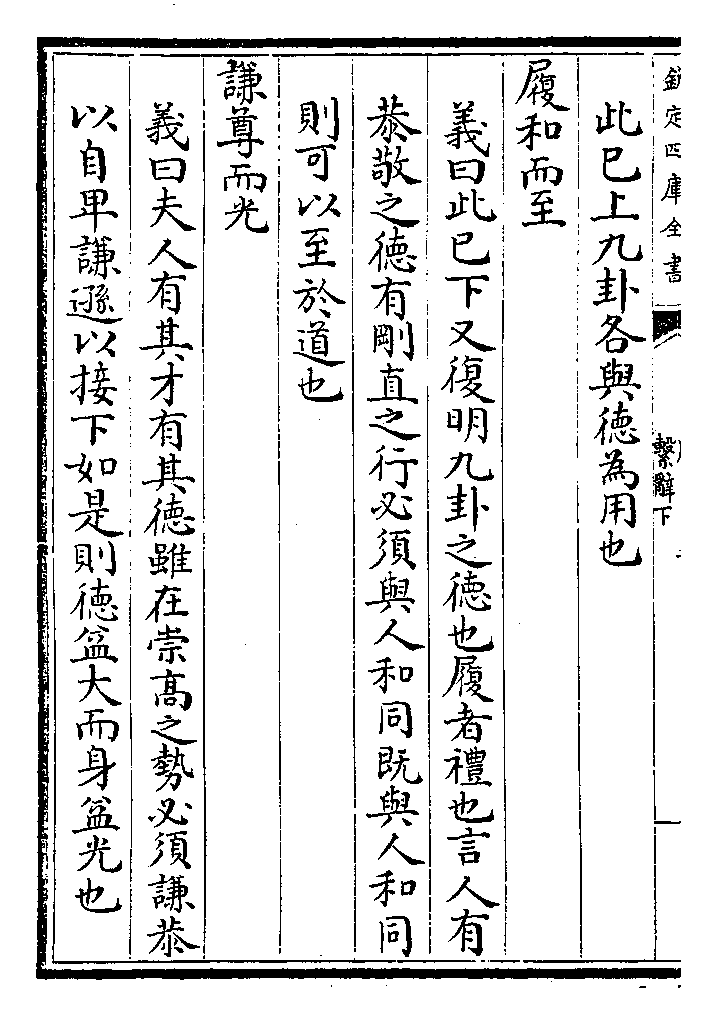 欽定四庫全書
繫辭下
此已上九卦各與徳為用也
履和而至
義曰此已下又復明九卦之徳也履者禮也言人有
恭敬之徳有剛直之行必須與人和同既與人和同
則可以至於道也
謙尊而光
義曰夫人有其才有其徳雖在崇髙之勢必須謙恭
以自卑謙遜以接下如是則徳益大而身益光也